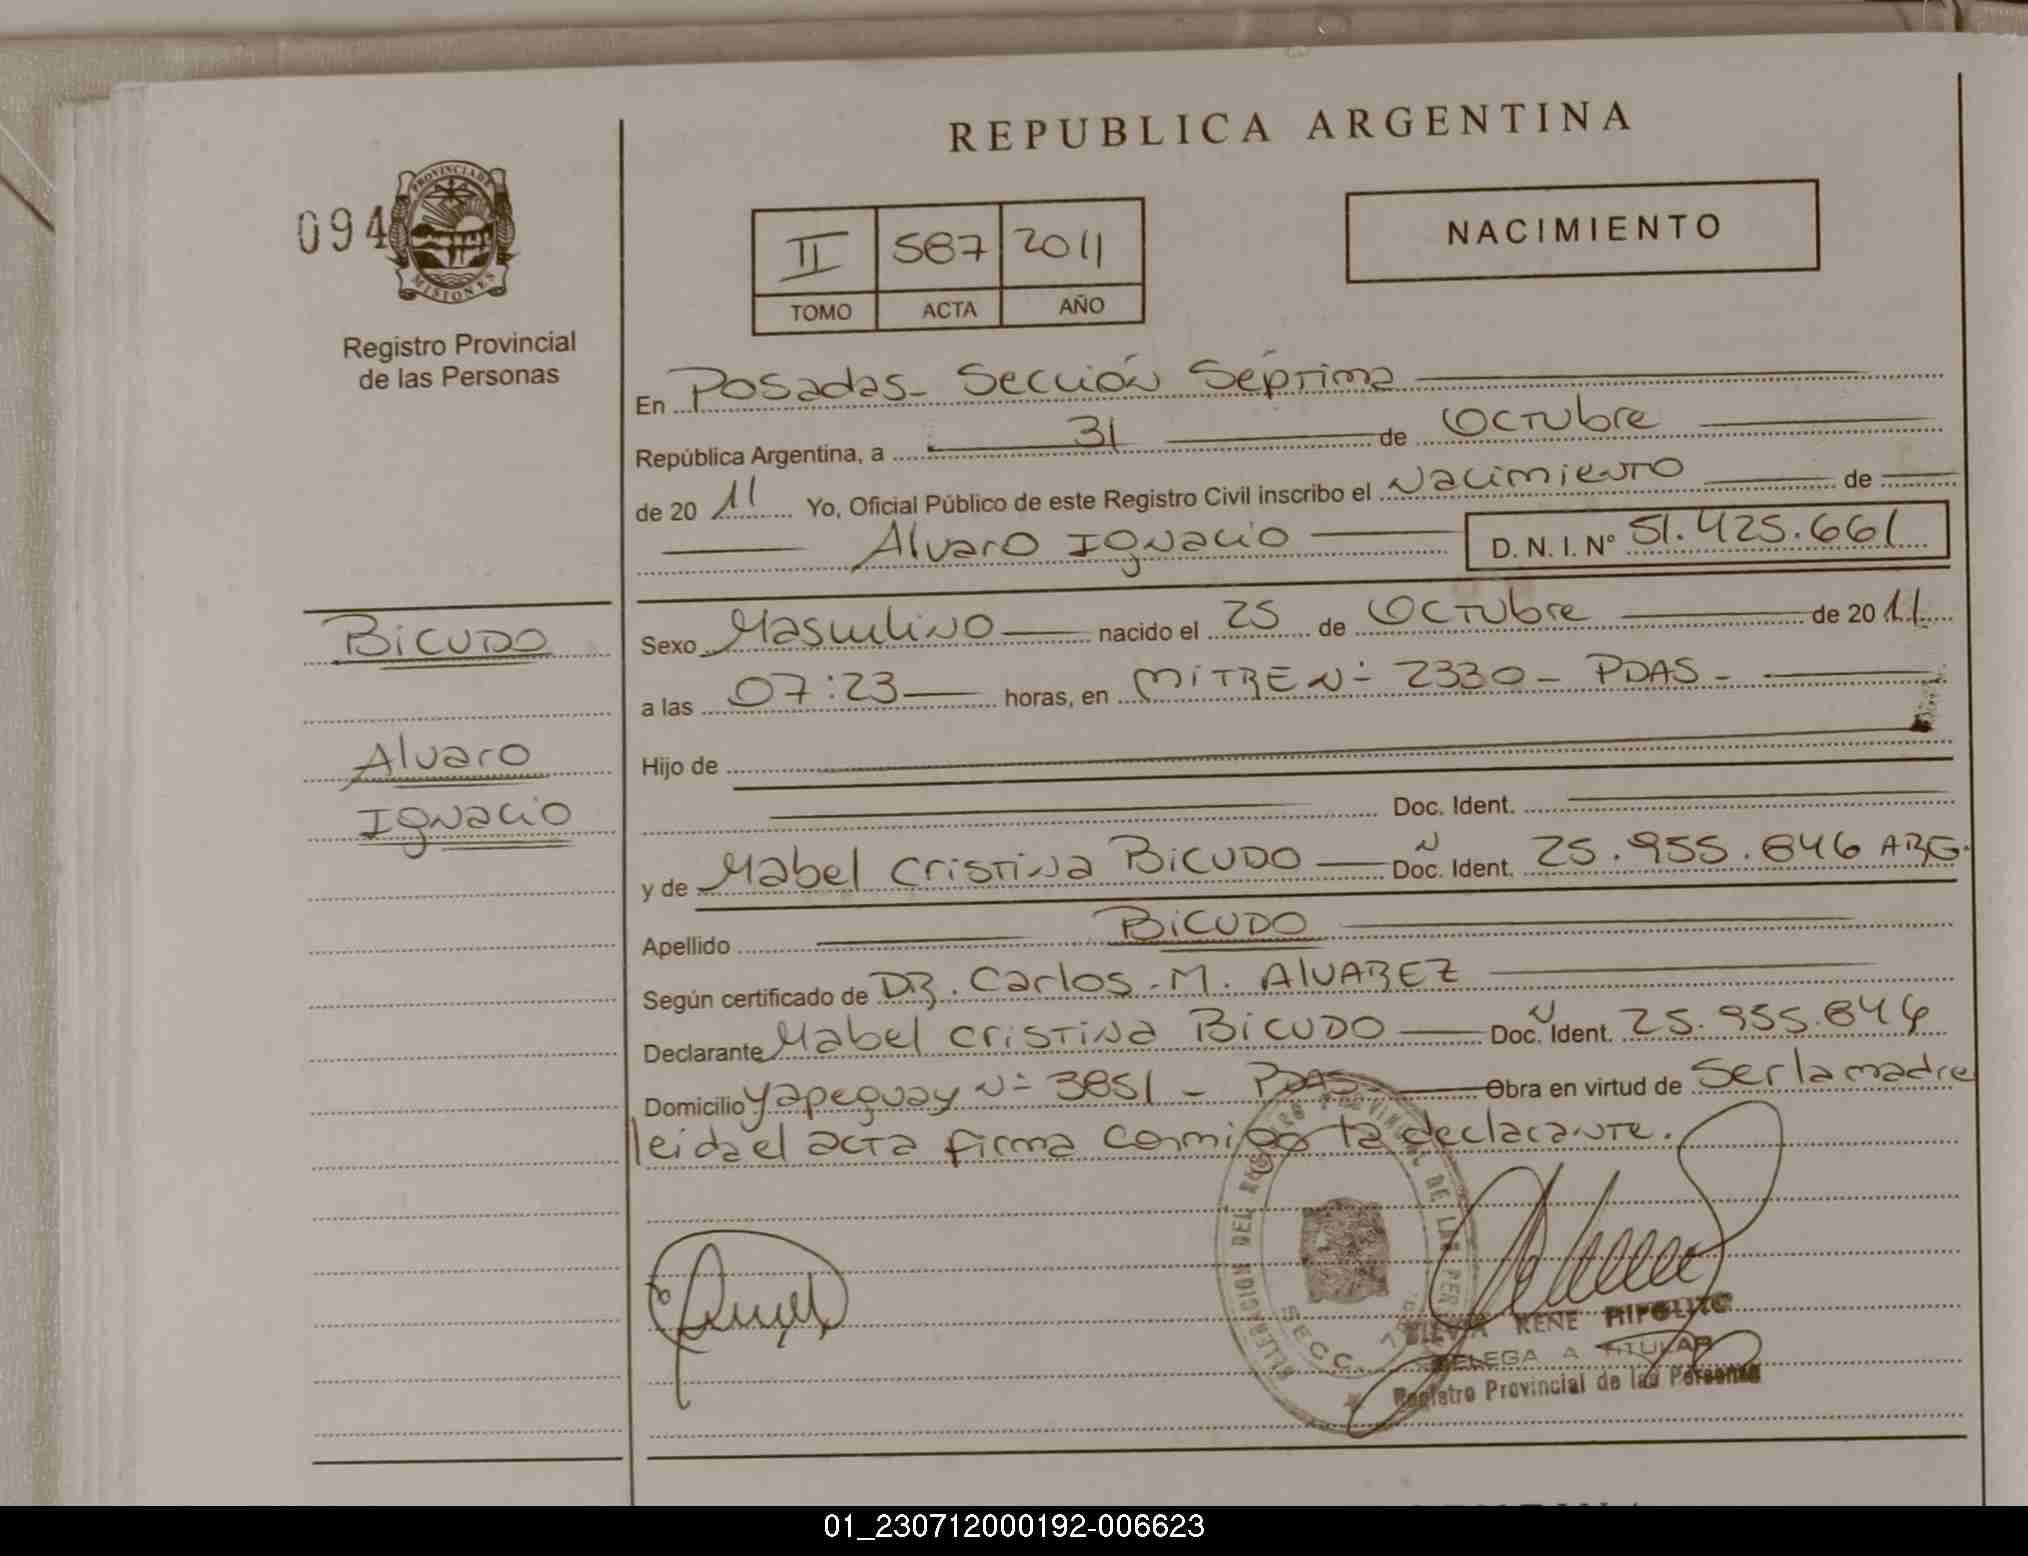 REPUBLICA ARGENTINA
094
PROVINCIA DE MISIONES
Registro Provincial
de las Personas
II 587 2011
TOMO ACTA AÑO
NACIMIENTO
En Posadas- Sección Séptima
República Argentina, a 31 de Octubre
de 2011 Yo, Oficial Público de este Registro Civil inscribo el Nacimiento de
Alvaro Ignacio D. N. I. Nº 51.425.661
BICUDO
Alvaro
Ignacio
Sexo Masculino nacido el 25 de Octubre de 2011
a las 07:23 horas, en MITRE N- 2330 - PDAS -
Hijo de
Doc. Ident.
y de Mabel Cristina BICUDO Doc. N Ident. 25.955.846 ARG.
Apellido BICUDO
Según certificado de DR. Carlos. M. ALVAREZ
Declarante Mabel Cristina BICUDO Doc. N Ident. 25.955.846
Domicilio Yapeguay N- 3851 - PDAS Obra en virtud de Ser la madre
leida el acta firma conmigo la declarante.
DEL REGISTRO PROVINCIAL DE LAS PER
SECC. 7
RENE HIPOLITO
DELEGA A TITULAR
Registro Provincial de las Personas
01_230712000192-006623